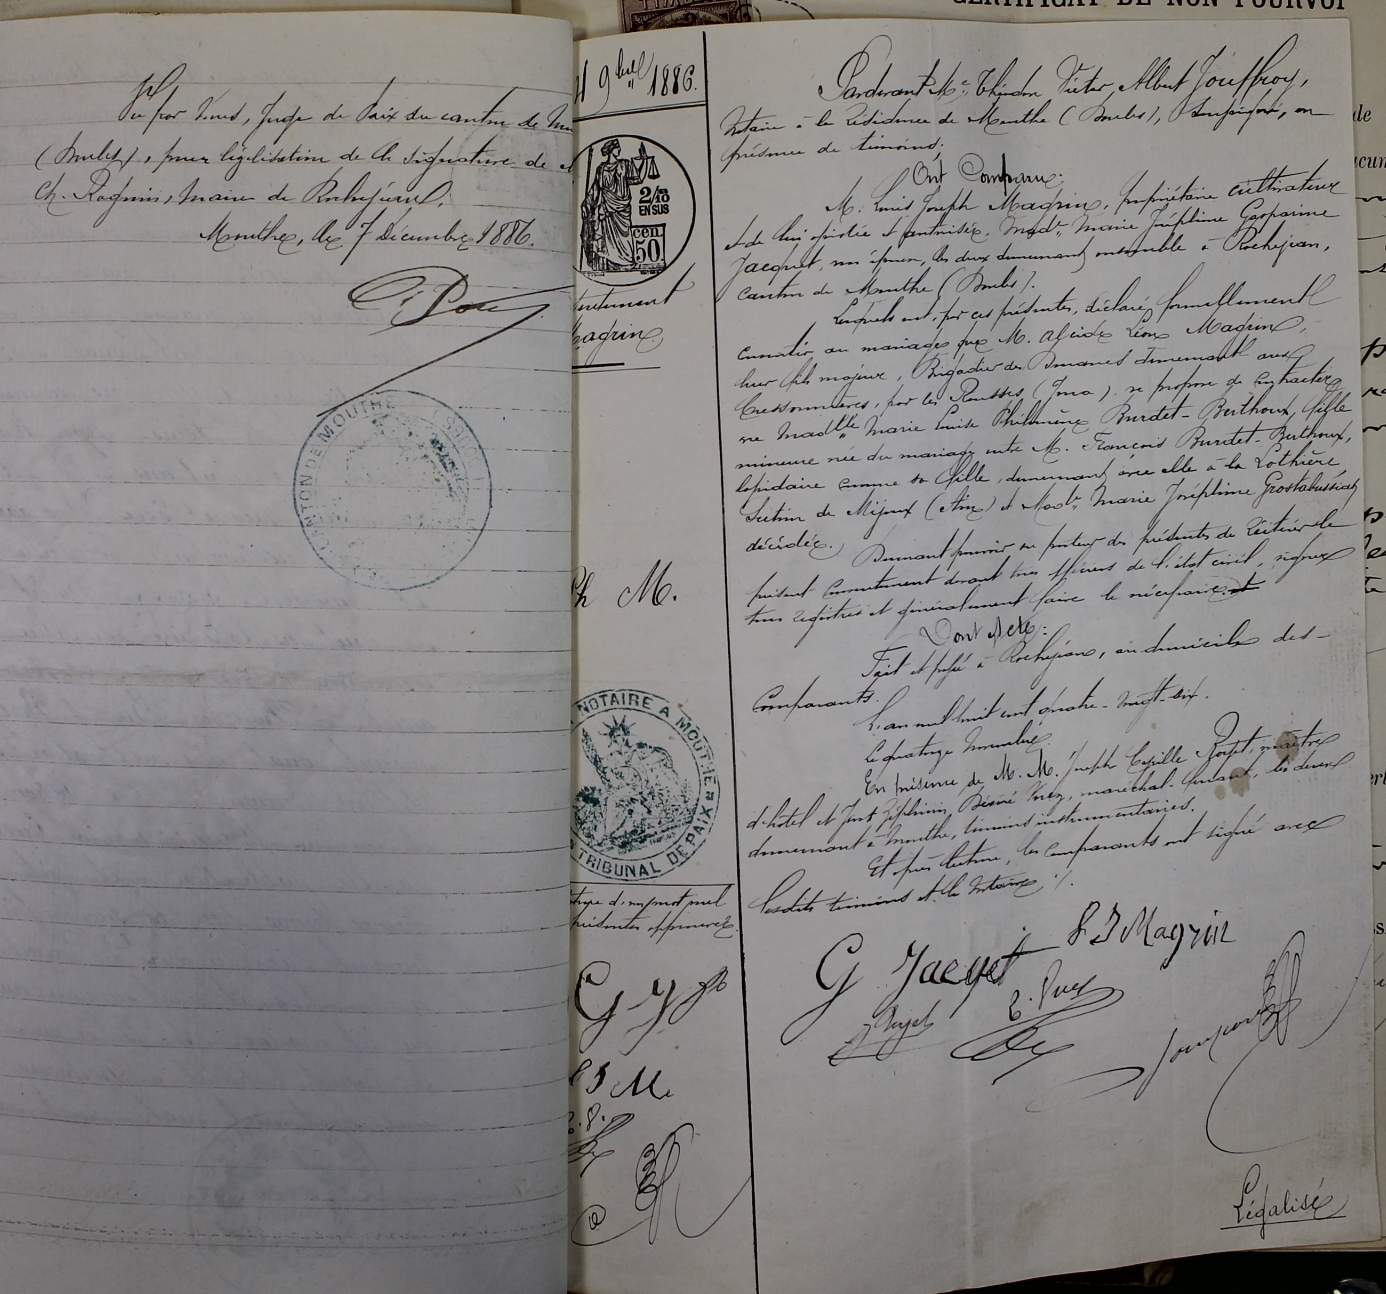 Vu par Nous, Juge de Paix du canton de
(Doubs), pour légalisation de la signature de
Ch. Ragnin, maire de Rochejean.
Mouthe, le 7 Décembre 1886.
CANTON DE MOUTHE
CERTIFICAT DE NON POURVOI
14 9bre 1886.
2/10
EN SUS
50
cen
Magrin
Ph M.
NOTAIRE A MOUTHE
TRIBUNAL DE PAIX
G J
L J M.
Pardevant Me Théodore Victor Albert Jouffroy,
Notaire à la résidence de Mouthe (Doubs), soussigné, en
présence de témoins;
Ont Comparu:
M. Louis Joseph Magrin, propriétaire cultivateur
et de lui assistée et autorisée, Made Marie Joséphine Gasparine
Jacquet, son épouse, les deux demeurant ensemble à Rochejean,
canton de Mouthe (Doubs).
Lesquels ont, par ces présentes, déclaré formellement
consentir au mariage que M. Alcide Léon Magrin,
leur fils majeur, Brigadier des Douanes demeurant aux
Cressonnières, par les Rousses (Jura) se propose de contracter
avec Madlle Marie Louise Philomène Burdet-Berthoux, fille
mineure née du mariage entre M. François Burdet-Berthoux,
lapidaire comme sa fille, demeurant avec elle à la
Section de Mijoux (Ain) et Made Marie Joséphine Grostabussiat,
décédée.
Donnant pouvoir au porteur des présentes de réitérer le
présent consentement devant tous officiers de l'état civil, signer
tous registres et généralement faire le nécessaire
Dont Acte:
Fait et passé à Rochejean, au domicile des
comparants.
L'an mil huit cent quatre-vingt-six.
Le quatorze Novembre
En présence de M.M. Joseph Cyrille maître
d'hôtel et Just Zéphirin Désiré maréchal-ferrant, les deux
demeurant à Mouthe, témoins instrumentaires.
Et après lecture, les comparants ont signé avec
lesdits témoins et le Notaire ./.
G Jacquet L J Magrin
Jouffroy
Légalisé